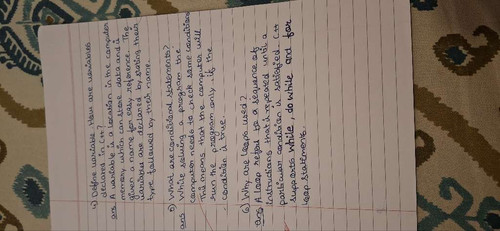 4) Define variable. How are variables
declared in C++.
ans A variable is a location in the computer
memory which can store data and is
given a name for easy reference. The
variables are declared by stating their
type followed by their name.
5) What are conditional statements?
ans While solving a program the
computer needs to check some conditions
This means that the computer will
run the program only if the
condition is true.
6) Why are loops used?
ans A loop refers to a sequence of
instructions that is repeated until a
particular condition is satisfied. C++
supports while, do while and for
loop statements.